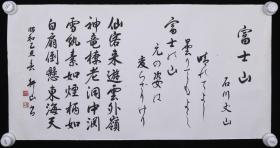 富士山
石川丈山
晴れてよし
曇りてもよし
富士の山
元の姿は
変らざりけり
仙客来遊雲外嶺
神竜棲老洞中淵
雪紈素如煙柄如
白扇倒懸東海天